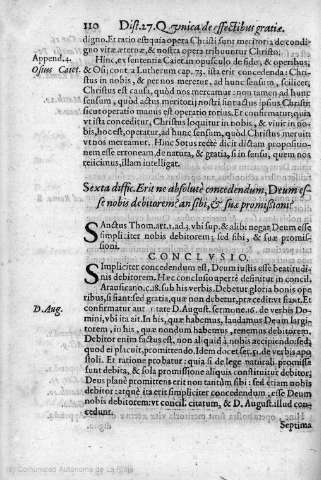 110 Dist. 27. Q. vnica, de effectibus gratiæ.
digno. Et ratio est quia opera Christi sunt meritoria de condi
gno vitæ æternæ, & nostra tribuuntur Christo.
Append. 4.
Hinc, ex sententia Caiet. in opusculo de fide, & operibus,
Osius Caiet.
& Osij cont a Lutherum cap. 73. ista erit concedenda: Chri-
stus in nobis, & per nos meretur, ad hunc sensum, scilicet,
Christus est causa, quòd nos mereamur: non tamen ad hunc
sensum, quòd actus meritorij nostri sint actus ipsius Christi:
sicut operatio manus est operatio totius. Et confirmatur; quia
vt ista conceditur, Christus loquitur in nobis, & viuit in no-
bis, hoc est, operatur, ad hunc sensum, quòd Christus meruit
vt nos mereamur. Hinc Sotus rectè dicit dictam propositio-
nem esse erroneam, de natura, & gratia, si in sensu, quem nos
reiicimus, illam intelligat.
Sexta diffic. Erit ne absolutè concedendum, Deum es-
se nobis debitorem? an sibi, & suæ promissioni?
SAnctus Thom. art. 1. ad. 3. vbi sup. & alibi negat Deum esse
simpliciter nobis debitorem; sed sibi, & suæ promis-
sioni.
CONCLVSIO.
SImpliciter concedendum est, Deum iustis esse beatitudi-
nis debitorem. Hæc conclusio apertè definitur in concil.
Arausicano. c. 18. sub his verbis. Debetur gloria bonis ope
ribus, si fiant: sed gratia, quæ non debetur, præcedit vt fiant. Et
D. Aug.
confirmatur aut tate D. August. sermone. 16. de verbis Do-
mini, vbi ita ait. In his, quæ habemus, laudamus Deum largi-
torem, in his, quæ nondum habemus, tenemus debitorem.
Debitor enim factus est, non aliquid à nobis accipiendo: sed,
quod ei placuit, promittendo. Idem docet ser. 9. de verbis apo
stoli. Et ratione probatur: quia si de lege naturali promisse
sunt debita, & sola promissione aliquis constituitur debitor;
Deus planè promittens erit non tantùm sibi: sed etiam nobis
debitor: atque ita erit simpliciter concedendum, esse Deum
nobis debitorem: vt concil. citatum, & D. August. illud con-
cedunt.
Septima
(c) Comunidad Autónoma de La Rioja